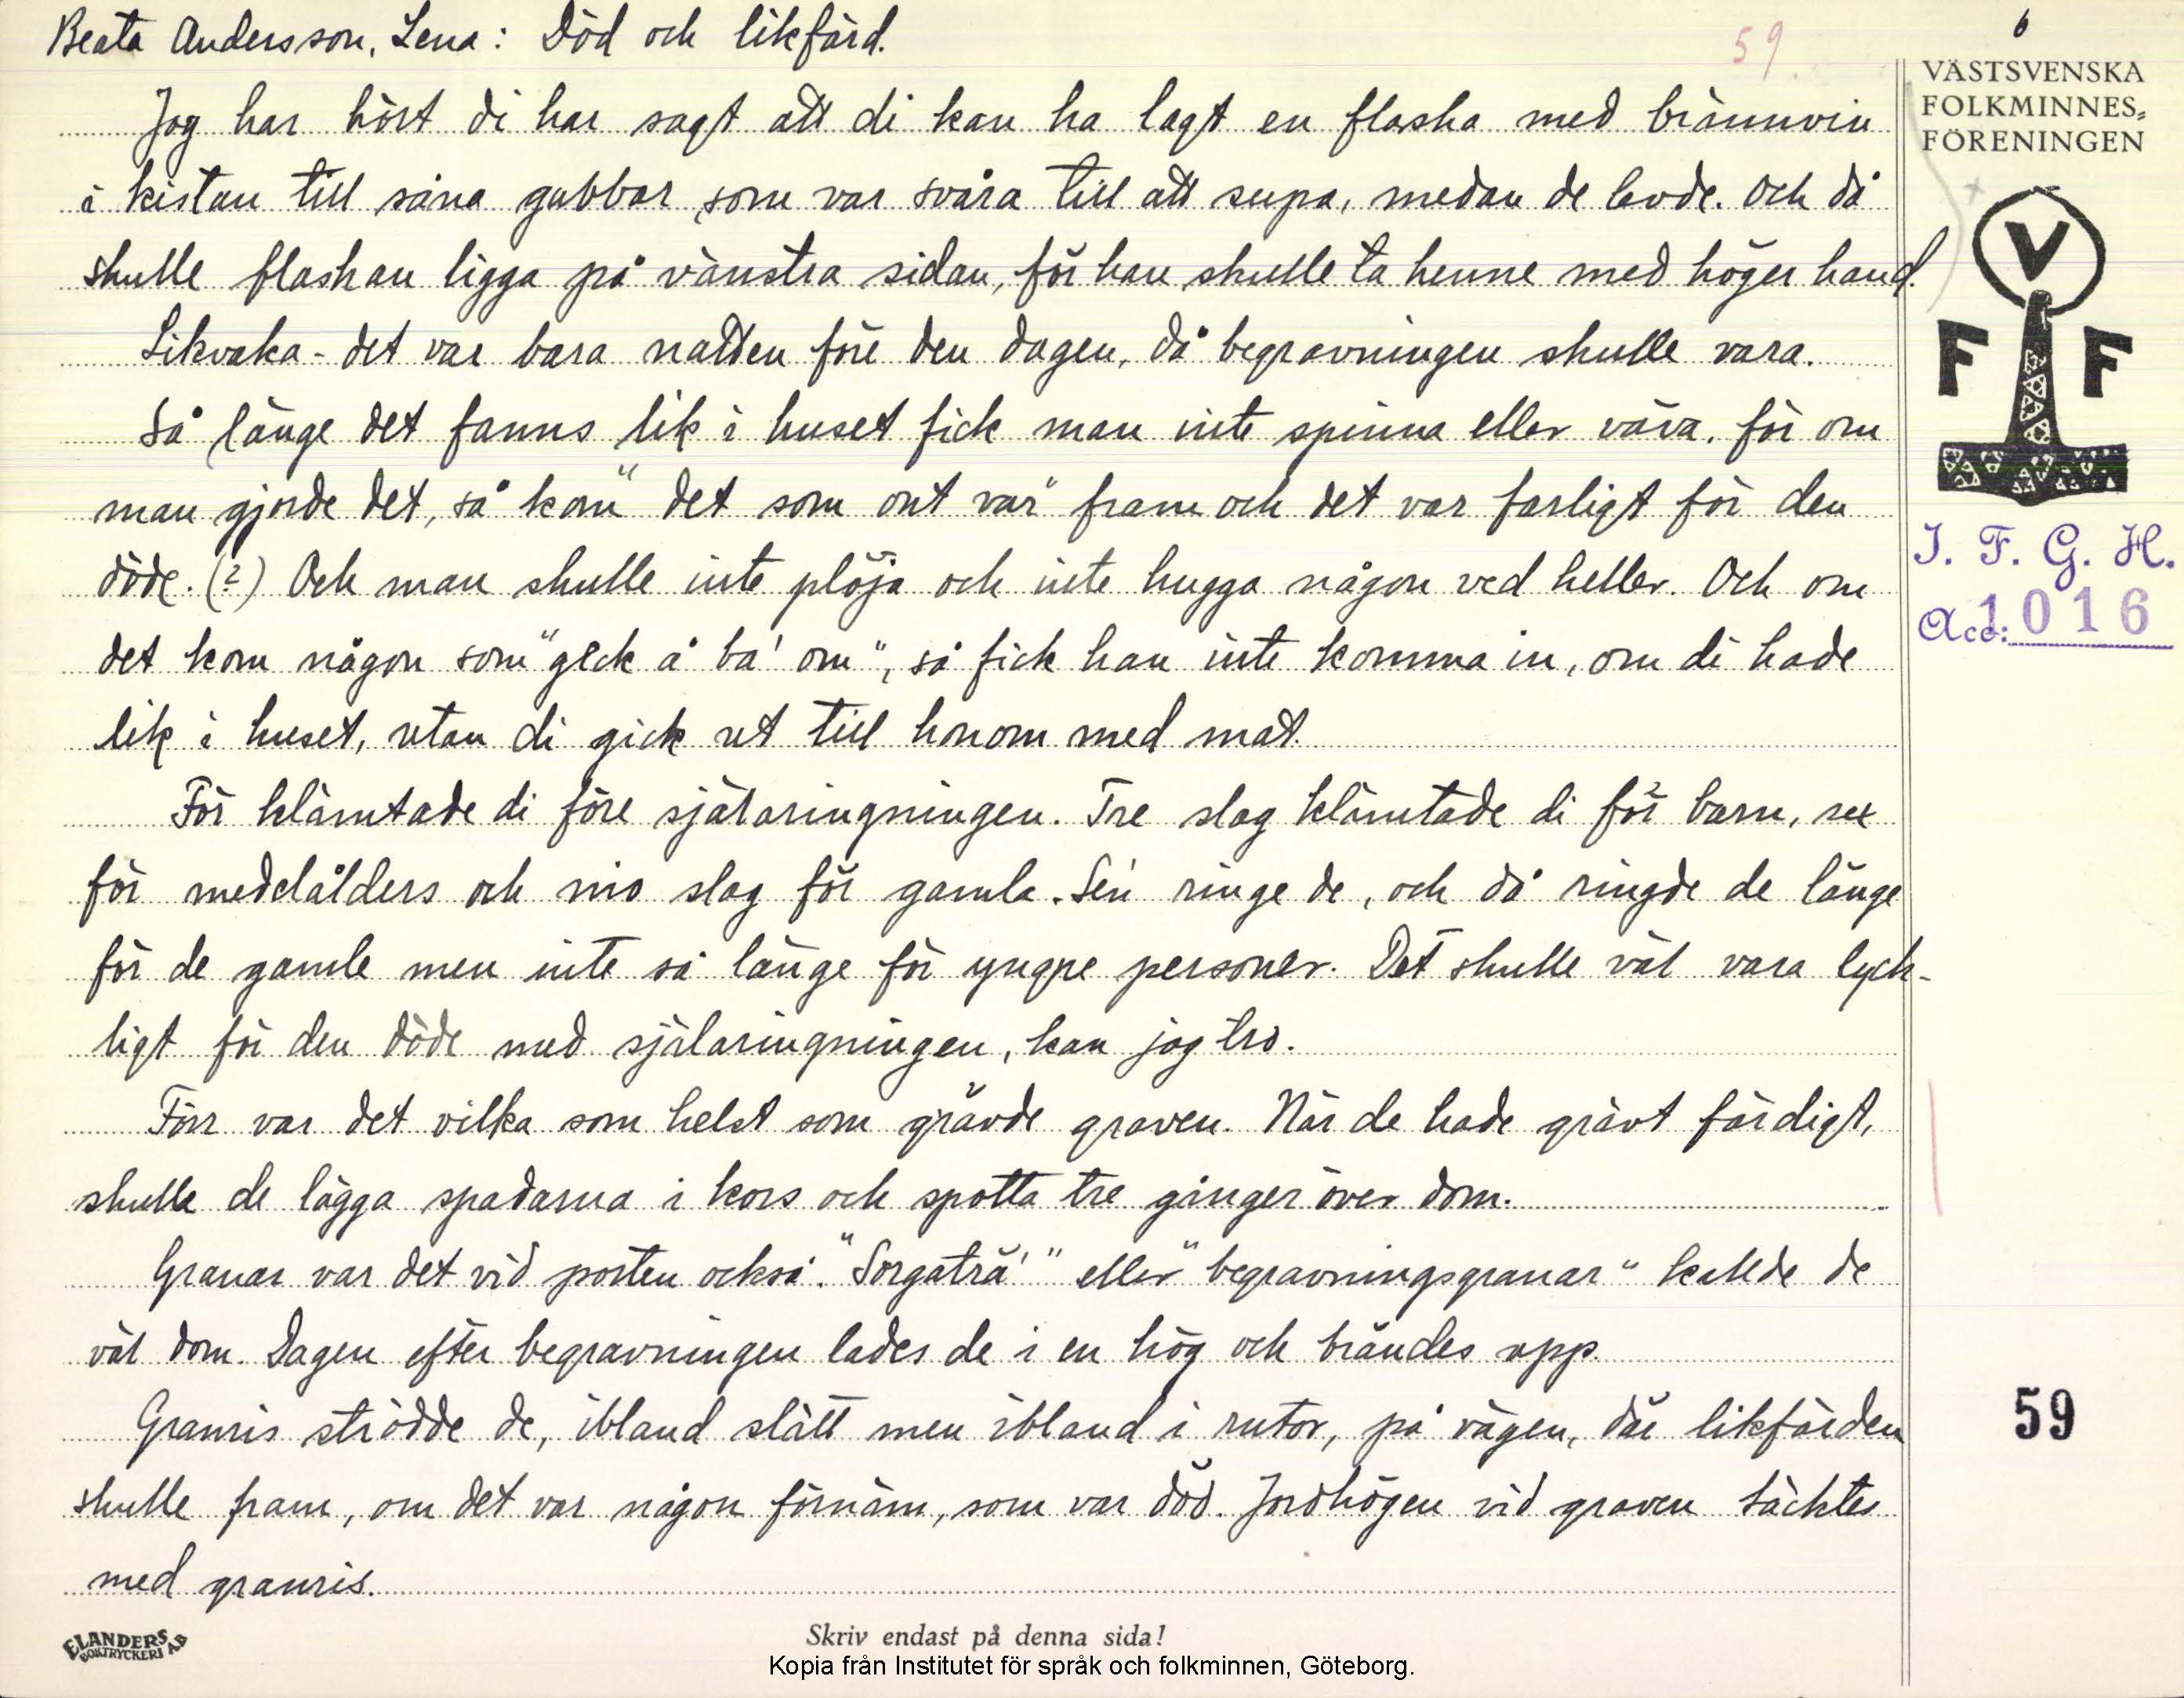 Beata Andersson, Lena: Död och likfärd.
59.
6
VÄSTSVENSKA
FOLKMINNES-
FÖRENINGEN
Jag har hört di har sagt att di kan ha lagt en flaska med brännvin
i kistan till såna gubbar som var svåra till att supa, medan de levde. Och då
skulle flaskan ligga på vänstra sidan, för han skulle ta henne med höger hand.
Likvaka - det var bara natten före den dagen, då begravningen skulle vara.
Så länge det fanns lik i huset fick man inte spinna eller väva, för om
man gjorde det, så kom "det som ont var" fram och det var farligt för den
döde. (?) Och man skulle inte plöja och inte hugga någon ved heller. Och om
det kom någon som "geck å ba' om", så fick han inte komma in, om di hade
lik i huset, utan di gick ut till honom med mat.
För klämtade di före själaringningen. Tre slag klämtade di för barn, sex
för medelålders och nio slag för gamla. Sen ringe de, och då ringde de länge
för de gamle men inte så länge för yngre personer. Det skulle väl vara lyck-
ligt för den döde med själaringningen, kan jag tro.
Förr var det vilka som helst som grävde graven. När de hade grävt färdigt,
skulle de lägga spadarna i kors och spotta tre gånger över dom.
Granar var det vid porten också. "Sorgaträ'" eller "begravningsgranar" kallde de
väl dom. Dagen efter begravningen lades de i en hög och brändes upp.
Granris strödde de, ibland slätt men ibland i rutor, på vägen, där likfärden
skulle fram, om det var någon förnäm, som var död. Jordhögen vid graven täcktes
med granris.
V
F F
I. F. G. H.
Acc: 1016
59
ELANDERS
BOKTRYCKERI AB
Skriv endast på denna sida!
Kopia från Institutet för språk och folkminnen, Göteborg.